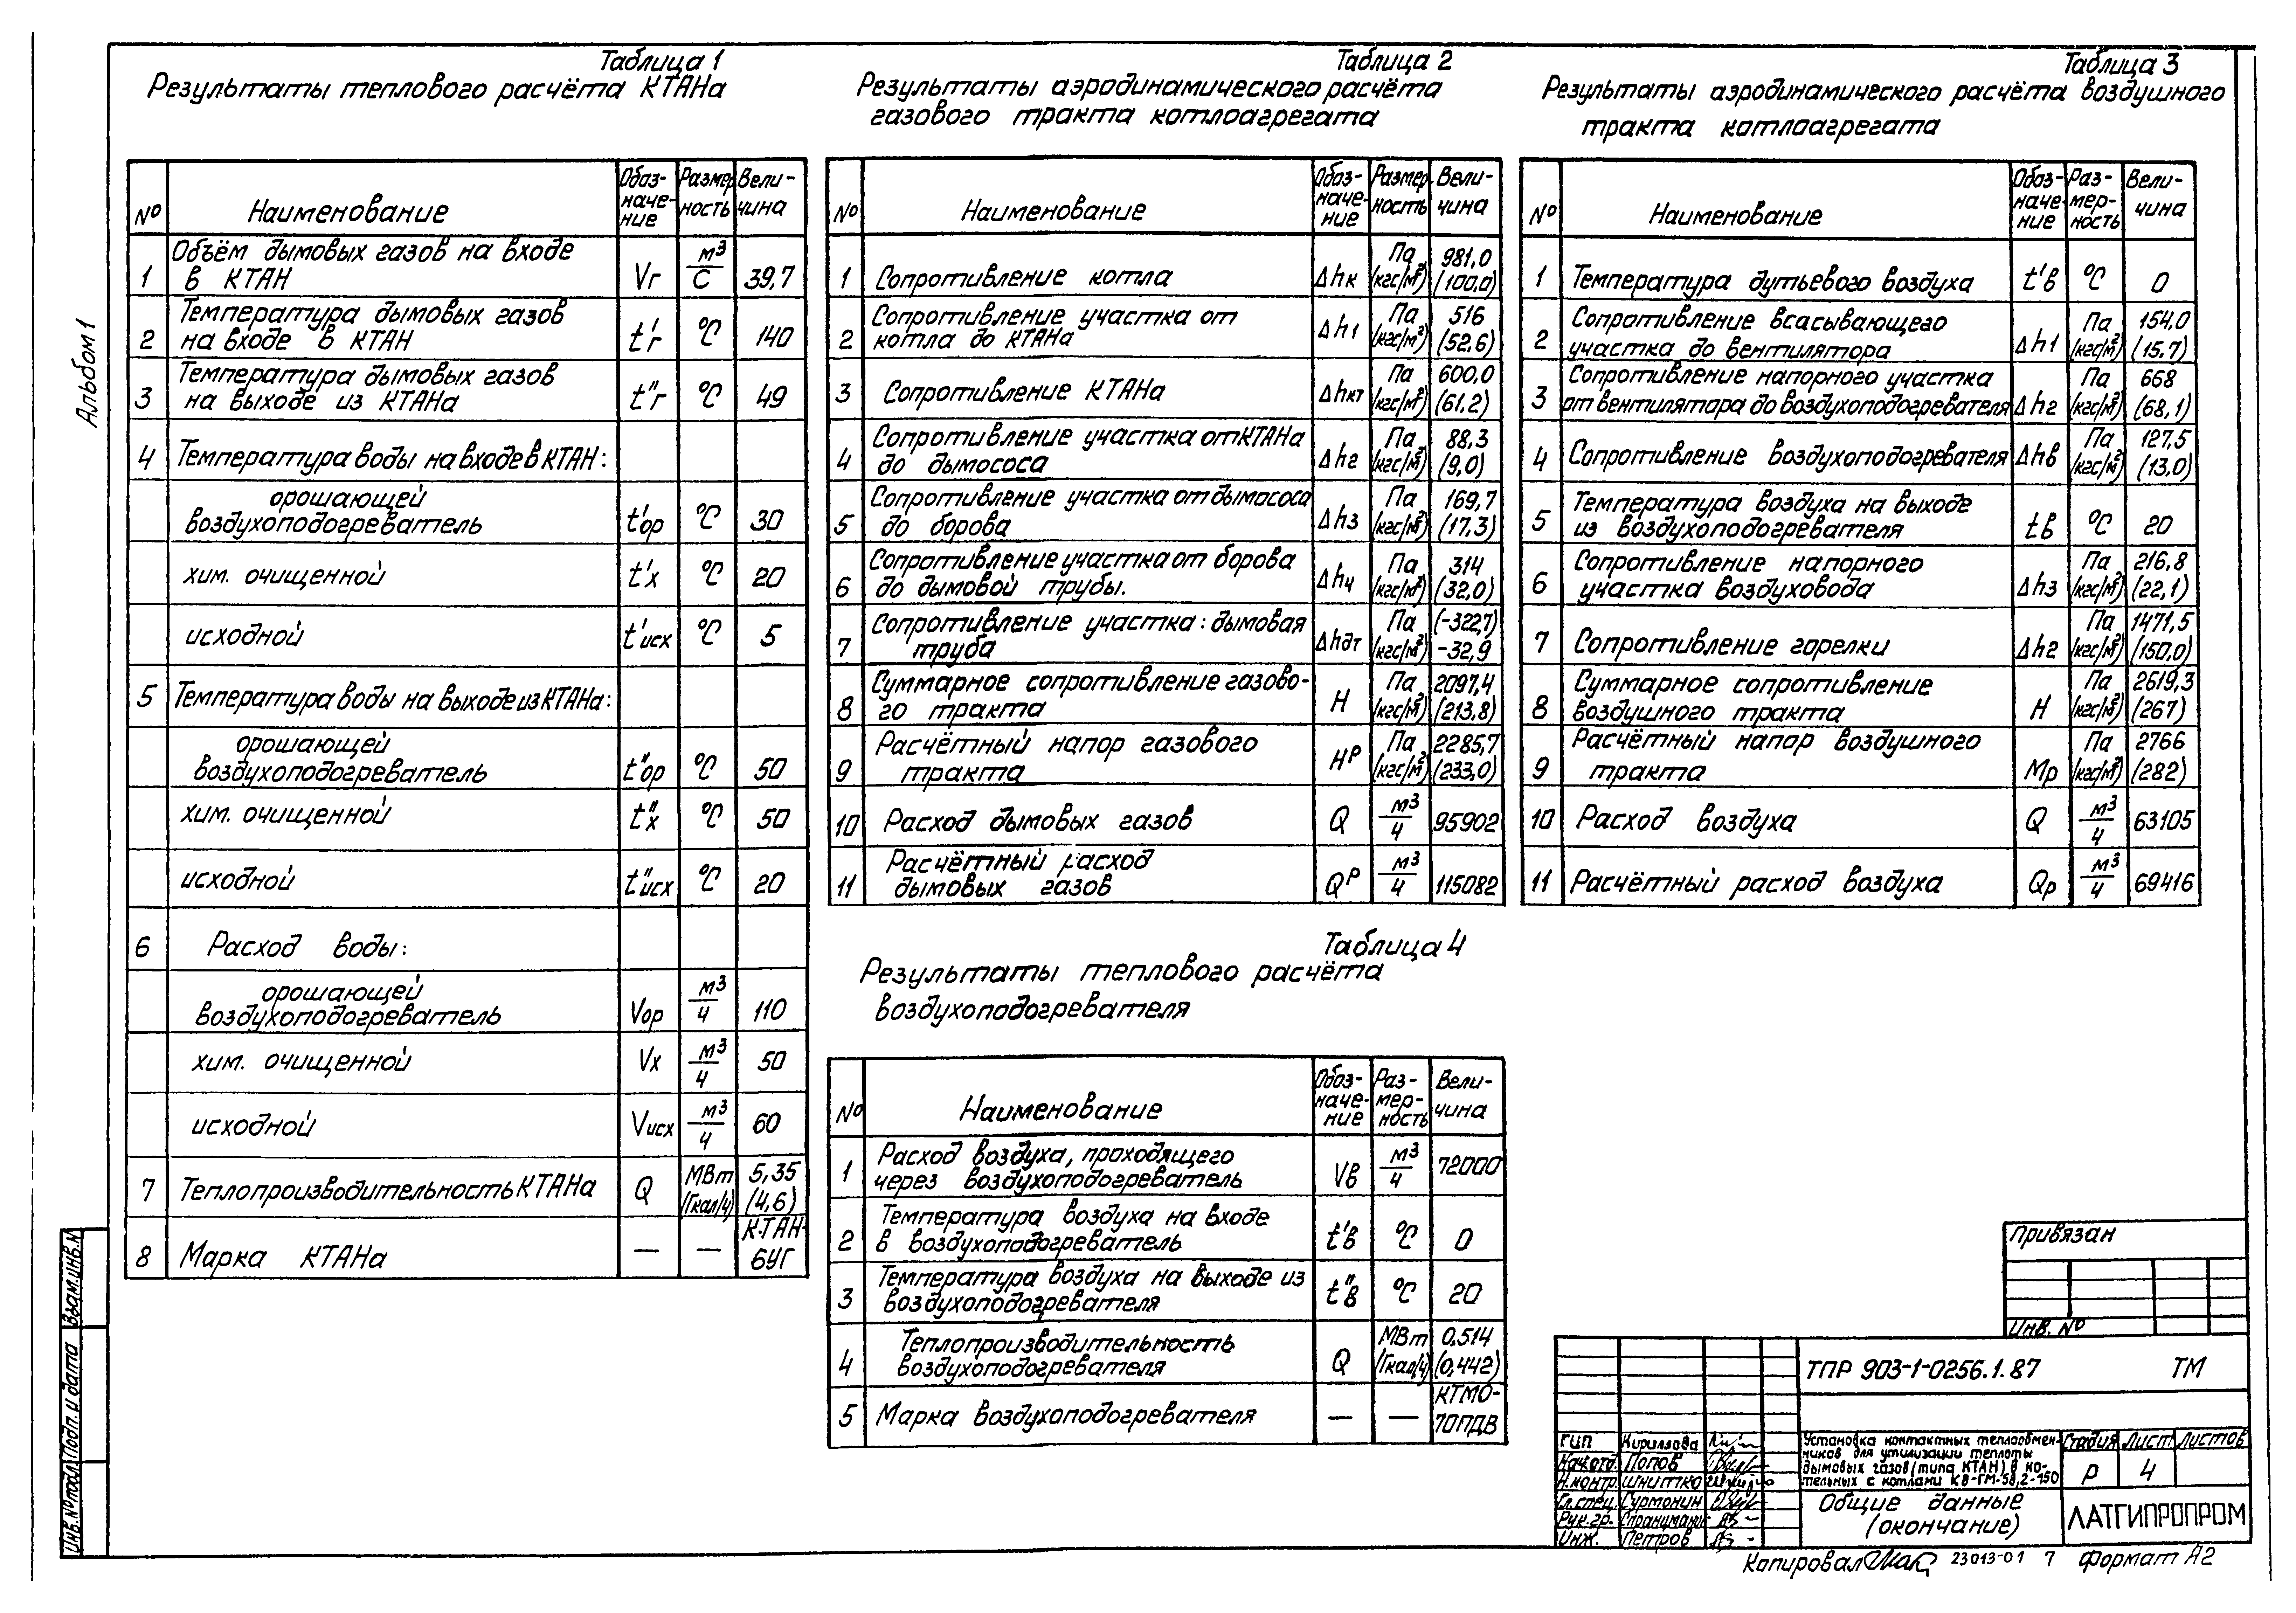 Альбом 1
Таблица 1
Результаты теплового расчёта КТАНа
№ Наименование Обоз-наче-ние Размерность Вели-чина
1 Объём дымовых газов на входе в КТАН Vг м³/с 39,7
2 Температура дымовых газов на входе в КТАН t'г °С 140
3 Температура дымовых газов на выходе из КТАНа t"г °С 49
4 Температура воды на входе в КТАН:
орошающей воздухоподогреватель t'ор °С 30
хим. очищенной t'х °С 20
исходной t'исх °С 5
5 Температура воды на выходе из КТАНа:
орошающей воздухоподогреватель t"ор °С 50
хим. очищенной t"х °С 50
исходной t"исх °С 20
6 Расход воды:
орошающей воздухоподогреватель Vор м³/ч 110
хим. очищенной Vх м³/ч 50
исходной Vисх м³/ч 60
7 Теплопроизводительность КТАНа Q МВт (Гкал/ч) 5,35 (4,6)
8 Марка КТАНа — — КТАН-6УГ
Таблица 2
Результаты аэродинамического расчёта
газового тракта котлоагрегата
№ Наименование Обоз-наче-ние Размер-ность Вели-чина
1 Сопротивление котла Δhк Па (кгс/м²) 981,0 (100,0)
2 Сопротивление участка от котла до КТАНа Δh1 Па (кгс/м²) 516 (52,6)
3 Сопротивление КТАНа Δhкт Па (кгс/м²) 600,0 (61,2)
4 Сопротивление участка от КТАНа до дымососа Δh2 Па (кгс/м²) 88,3 (9,0)
5 Сопротивление участка от дымососа до борова Δh3 Па (кгс/м²) 169,7 (17,3)
6 Сопротивление участка от борова до дымовой трубы. Δh4 Па (кгс/м²) 314 (32,0)
7 Сопротивление участка: дымовая труба Δhдт Па (кгс/м²) (-322,7) -32,9
8 Суммарное сопротивление газово-го тракта Н Па (кгс/м²) 2097,4 (213,8)
9 Расчётный напор газового тракта Нр Па (кгс/м²) 2285,7 (233,0)
10 Расход дымовых газов Q м³/ч 95902
11 Расчётный расход дымовых газов Qр м³/ч 115082
Таблица 3
Результаты аэродинамического расчёта воздушного
тракта котлоагрегата
№ Наименование Обоз-наче-ние Раз-мер-ность Вели-чина
1 Температура дутьевого воздуха t'в °С 0
2 Сопротивление всасывающего участка до вентилятора Δh1 Па (кгс/м²) 154,0 (15,7)
3 Сопротивление напорного участка от вентилятора до воздухоподогревателя Δh2 Па (кгс/м²) 668 (68,1)
4 Сопротивление воздухоподогревателя Δhв Па (кгс/м²) 127,5 (13,0)
5 Температура воздуха на выходе из воздухоподогревателя tв °С 20
6 Сопротивление напорного участка воздуховода Δh3 Па (кгс/м²) 216,8 (22,1)
7 Сопротивление горелки Δhг Па (кгс/м²) 1471,5 (150,0)
8 Суммарное сопротивление воздушного тракта Н Па (кгс/м²) 2619,3 (267)
9 Расчётный напор воздушного тракта Мр Па (кгс/м²) 2766 (282)
10 Расход воздуха Q м³/ч 63105
11 Расчётный расход воздуха Qр м³/ч 69416
Таблица 4
Результаты теплового расчёта
воздухоподогревателя
№ Наименование Обоз-наче-ние Раз-мер-ность Вели-чина
1 Расход воздуха, проходящего через воздухоподогреватель Vв м³/ч 72000
2 Температура воздуха на входе в воздухоподогреватель t'в °С 0
3 Температура воздуха на выходе из воздухоподогревателя t"в °С 20
4 Теплопроизводительность воздухоподогревателя Q МВт (Гкал/ч) 0,514 (0,442)
5 Марка воздухоподогревателя — — КТМО-70ПДВ
Привязан
Инв. №
ТПР 903-1-0256.1.87 ТМ
ГИП Кириллова
Нач.отд. Попов
Н.контр. Шнитко
Гл.спец. Сурмонин
Рук.гр.
Инж. Петров
Установка контактных теплообмен-
ников для утилизации теплоты
дымовых газов (типа КТАН) в ко-
тельных с котлами КВ-ГМ-58,2-150
Стадия Лист Листов
Р 4
Общие данные
(окончание)
ЛАТГИПРОПРОМ
Копировал 23013-01 7 Формат А2
Взам.инв.№
Подп. и дата
Инв.№ подл.